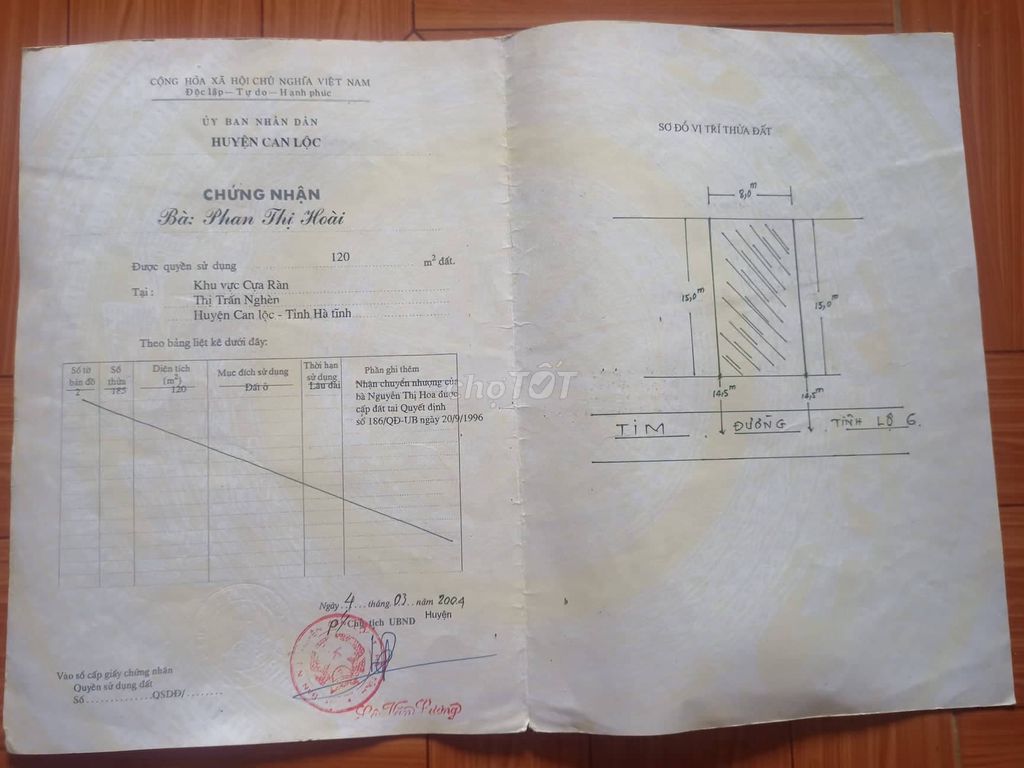 CỘNG HÒA XÃ HỘI CHỦ NGHĨA VIỆT NAM
Độc lập – Tự do – Hạnh phúc
ỦY BAN NHÂN DÂN
HUYỆN CAN LỘC
CHỨNG NHẬN
Bà: Phan Thị Hoài
Được quyền sử dụng 120 m² đất.
Tại : Khu vực Cựa Ràn
Thị Trấn Nghèn
Huyện Can lộc - Tỉnh Hà tĩnh
Theo bảng liệt kê dưới đây:
Số tờ bản đồ Số thửa Diện tích (m²) Mục đích sử dụng Thời hạn sử dụng Phần ghi thêm
2 185 120 Đất ở Lâu dài Nhận chuyển nhượng của
bà Nguyễn Thị Hoa được
cấp đất tai Quyết định
số 186/QĐ-UB ngày 20/9/1996
Ngày 4 tháng 03 năm 2004
P/ Chủ tịch UBND Huyện
Vào sổ cấp giấy chứng nhân
Quyền sử dụng đất
Số...............QSDĐ/........
SƠ ĐỒ VỊ TRÍ THỬA ĐẤT
8,0m
15,0m
15,0m
14,5m
14,5m
TIM ĐƯỜNG TỈNH LỘ 6.
chợTỐT